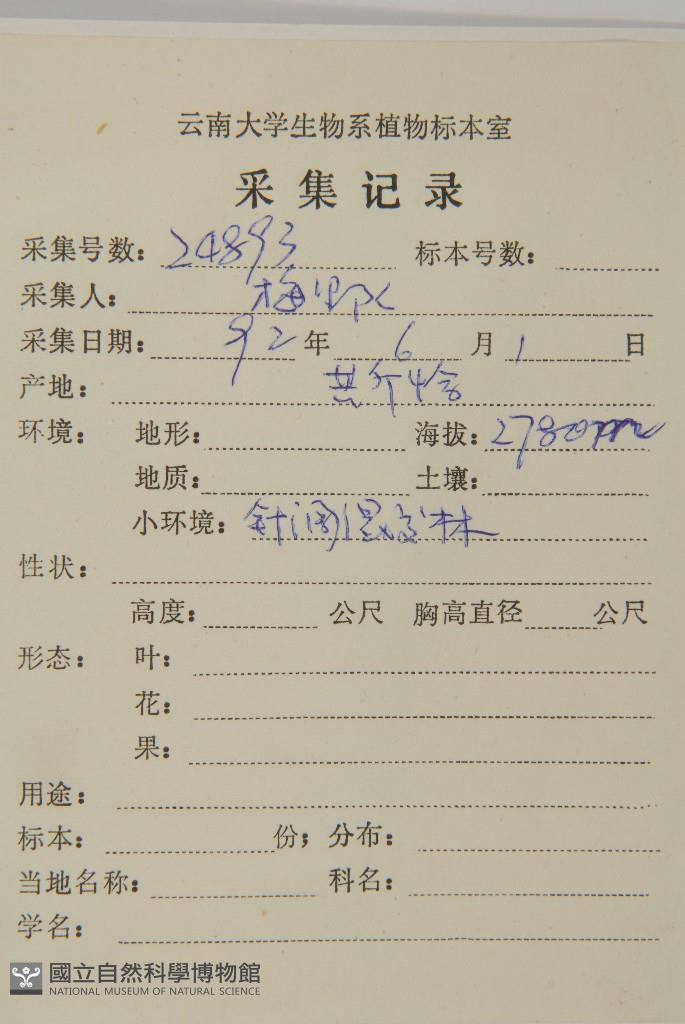 云南大学生物系植物标本室
采集记录
采集号数：24893 标本号数：
采集人：梅
采集日期：92年6月1日
产地：
环境：地形： 海拔：2780m
地质： 土壤：
小环境：针阔混交林
性状：
高度： 公尺 胸高直径 公尺
形态：叶：
花：
果：
用途：
标本： 份；分布：
当地名称： 科名：
学名：
國立自然科學博物館
NATIONAL MUSEUM OF NATURAL SCIENCE